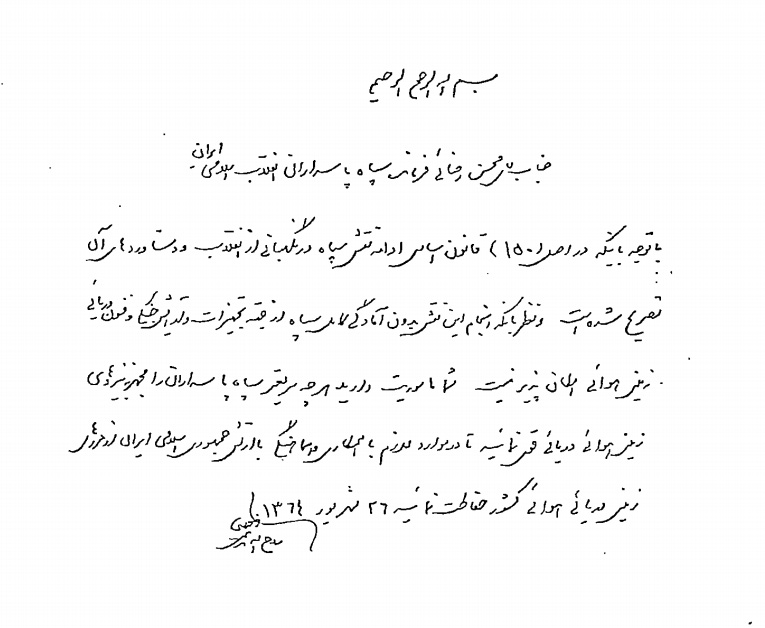 بسم الله الرحمن الرحیم
جناب آقای محسن رضائی فرمانده سپاه پاسداران انقلاب اسلامی ایران
با توجه باینکه در اصل (۱۵۰) قانون اساسی ادامه نقش سپاه در نگهبانی از انقلاب و دستاوردهای آن
تصریح شده است و نظر باینکه انجام این نقش بدون آمادگی کامل سپاه از جهت تجهیزات و فنون دریائی
زمینی هوائی امکان پذیر نیست شما ماموریت دارید هر چه سریعتر سپاه پاسداران را مجهز به نیروی
زمینی هوائی دریائی قوی نمائید تا در موارد لازم با همکاری و هماهنگی با ارتش جمهوری اسلامی ایران از مرزهای
زمینی دریائی هوائی کشور حفاظت نمائید ۲۶ شهریور ۱۳۶۴
روح الله الموسوی الخمینی